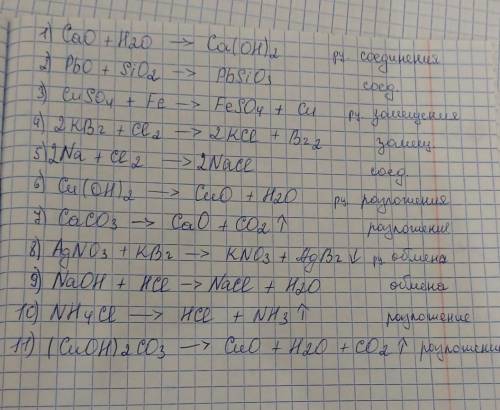 1) CaO + H2O → Ca(OH)2 рц соединения
2) PbO + SiO2 → PbSiO3 соед.
3) CuSO4 + Fe → FeSO4 + Cu рц замещения
4) 2KBr + Cl2 → 2KCl + Br2 замещ.
5) 2Na + Cl2 → 2NaCl соед.
6) Cu(OH)2 → CuO + H2O рц разложения
7) CaCO3 → CaO + CO2 ↑ разложение
8) AgNO3 + KBr → KNO3 + AgBr ↓ рц обмена
9) NaOH + HCl → NaCl + H2O обмена
10) NH4Cl → HCl + NH3 ↑ разложение
11) (CuOH)2CO3 → CuO + H2O + CO2 ↑ разложени